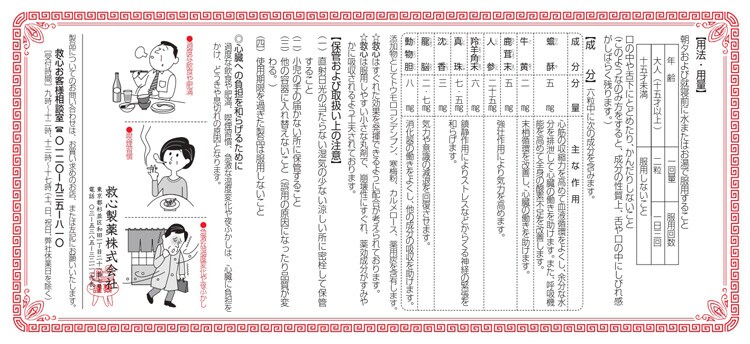 【用法・用量】
朝夕および就寝前に水またはお湯で服用すること
年齢 一回量 服用回数
大人(十五才以上) 二粒 一日三回
十五才未満 服用しないこと
口の中や舌下にとどめたり、かんだりしないこと
(このようなのみ方をすると、成分の性質上、舌や口の中にしびれ感
がしばらく残ります。)
【成分】六粒中に次の成分を含みます。
成分 分量 主な作用
蟾酥 五㎎ 心筋の収縮力を高めて血液循環をよくし、余分な水
分を排泄して心臓の働きを助けます。また、呼吸機
能を高めて全身の酸素不足を改善します。
牛黄 四㎎ 末梢循環を改善し、心臓の働きを助けます。
鹿茸末 五㎎ 強壮作用により気力を高めます。
人参 二十五㎎
羚羊角末 六㎎ 鎮静作用によりストレスなどからくる神経の緊張を
和らげます。
真珠 七・五㎎
沈香 三㎎ 気力や意識の減退を回復させます。
龍脳 二・七㎎
動物胆 八㎎ 消化器の働きをよくし、他の成分の吸収を助けます。
添加物としてトウモロコシデンプン、寒梅粉、カルメロース、薬用炭を含有します。
☆救心はすぐれた効果を発揮できるように配合が考えられております。
☆救心は服用しやすい小さな丸剤で、崩壊性にすぐれ、薬効成分がすみや
かに吸収されるよう工夫されております。
【保管および取扱い上の注意】
(一)直射日光の当たらない湿気の少ない涼しい所に密栓して保管
すること
(二)小児の手の届かない所に保管すること
(三)他の容器に入れ替えないこと(誤用の原因になったり品質が変
わる。)
(四)使用期限を過ぎた製品は服用しないこと
◎心臓への負担を和らげるために
過度な飲食や肥満、喫煙習慣、急激な温度変化や夜ふかしは、心臓に負担を
かけ、どうきや息切れの原因となります。
●過度な飲食や肥満
●喫煙習慣
●急激な温度変化や夜ふかし
製品についてのお問い合わせは、お買い求めのお店、または左記にお願いいたします。
救心お客様相談室☎〇一二〇-九三五-八一〇
(受付時間 九時~十二時、十三時~十七時(土、日、祝日、弊社休業日を除く))
救心製薬株式会社
東京都杉並区和田一丁目二十一番七号